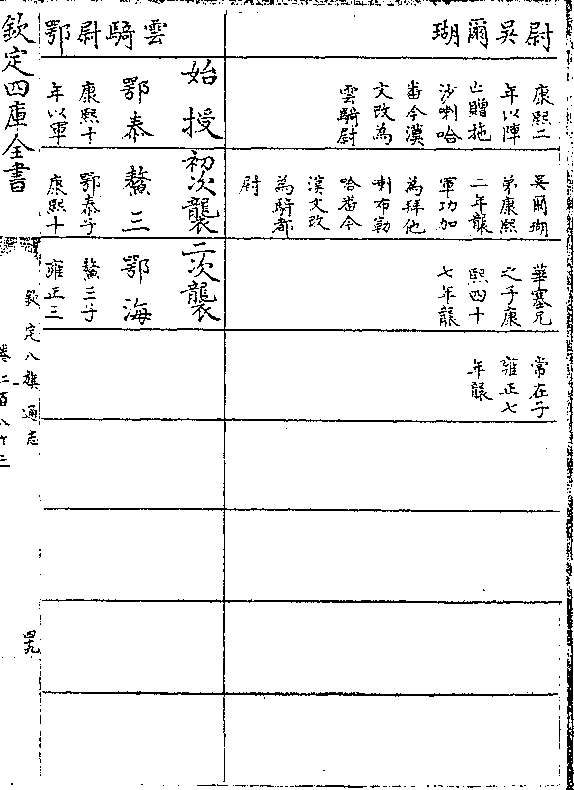 尉吳爾瑚
康熙二
年以陣
亡贈拖
沙喇哈
畨今漢
文改為
雲騎尉
吳爾瑚
弟康熙
二年襲
軍功加
為拜他
喇布勒
哈畨今
漢文改
為騎都
尉
華塞兄
之子康
熙四十
七年襲
常在子
雍正七
年襲
雲騎尉鄂
始授
鄂泰
康熙十
年以軍
初次襲
鰲三
鄂泰子
康熙十
二次襲
鄂海
鰲三子
雍正三
欽定四庫全書
欽定八旗通志
卷二百八十三
四九